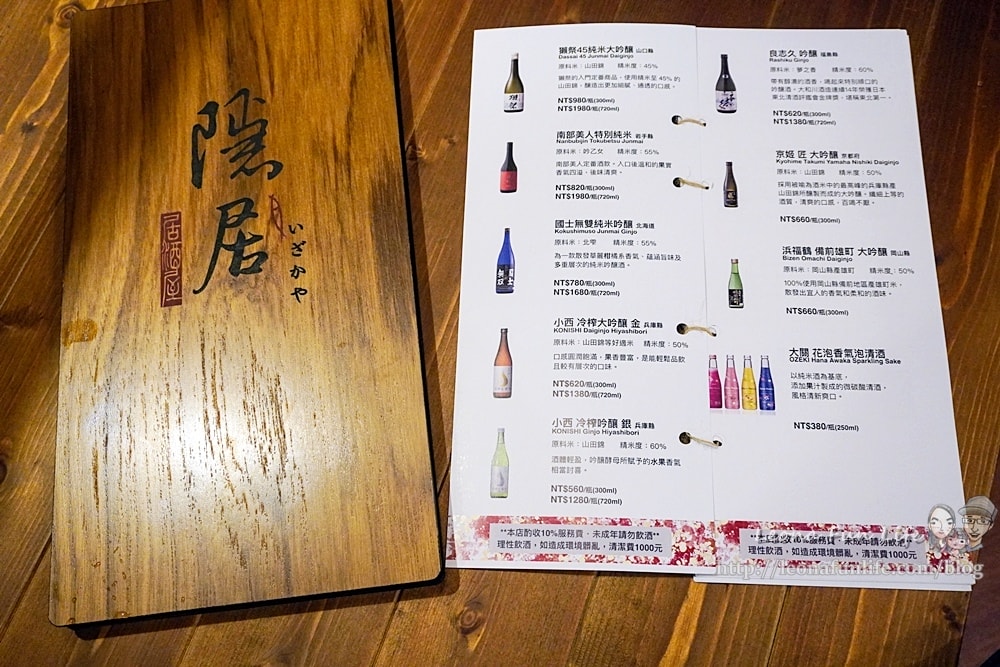 隱居
居酒屋
いざかや
獺祭45純米大吟釀 山口縣
Dassai 45 Junmai Daiginjo
原料米：山田錦 精米度：45%
獺祭的入門定番商品，使用精米至 45% 的
山田錦，釀造出更加細膩、通透的口感。
NT$980/瓶(300ml)
NT$1980/瓶(720ml)
南部美人特別純米 岩手縣
Nanbubijin Tokubetsu Junmai
原料米：吟乙女 精米度：55%
南部美人定番酒款，入口後溫和的果實
香氣四溢、後味清爽。
NT$820/瓶(300ml)
NT$1980/瓶(720ml)
國士無雙純米吟釀 北海道
Kokushimuso Junmai Ginjo
原料米：北雫 精米度：55%
為一款散發華麗柑橘系香氣、蘊涵旨味及
多重層次的純米吟釀酒。
NT$780/瓶(300ml)
NT$1680/瓶(720ml)
小西 冷榨大吟釀 金 兵庫縣
KONISHI Daiginjo Hiyashibori
原料米：山田錦等好適米 精米度：50%
口感圓潤飽滿，果香豐富，是能輕鬆品飲
且較有層次的口味。
NT$620/瓶(300ml)
NT$1380/瓶(720ml)
小西 冷榨吟釀 銀 兵庫縣
KONISHI Ginjo Hiyashibori
原料米：山田錦 精米度：60%
酒體輕盈，吟釀酵母所賦予的水果香氣
相當討喜。
NT$560/瓶(300ml)
NT$1280/瓶(720ml)
**本店酌收10%服務費．未成年請勿飲酒**
理性飲酒，如造成環境髒亂，清潔費1000元
良志久 吟釀 福島縣
Rashiku Ginjo
原料米：夢之香 精米度：60%
帶有馥濃的酒香，喝起來特別順口的
吟釀酒。大和川酒造連續14年榮獲日本
東北清酒評鑑會金牌獎，堪稱東北第一。
NT$620/瓶(300ml)
NT$1380/瓶(720ml)
京姬 匠 大吟釀 京都府
Kyohime Takumi Yamaha Nishiki Daiginjo
原料米：山田錦 精米度：50%
採用被喻為酒米中的最高峰的兵庫縣產
山田錦所釀製而成的大吟釀。纖細上等的
酒質，清爽的口感，百喝不厭。
NT$660/瓶(300ml)
浜福鶴 備前雄町 大吟釀 岡山縣
Bizen Omachi Daiginjo
原料米：岡山縣產雄町 精米度：50%
100%使用岡山縣備前地區產雄町米，
散發出宜人的香氣和柔和的酒味。
NT$660/瓶(300ml)
大關 花泡香氣泡清酒
OZEKI Hana Awaka Sparkling Sake
以純米酒為基底，
添加果汁製成的微碳酸清酒，
風格清新爽口。
NT$380/瓶(250ml)
收10%服務費．未成年請勿飲酒
理性飲酒，如造成環境髒亂，清潔費1000元